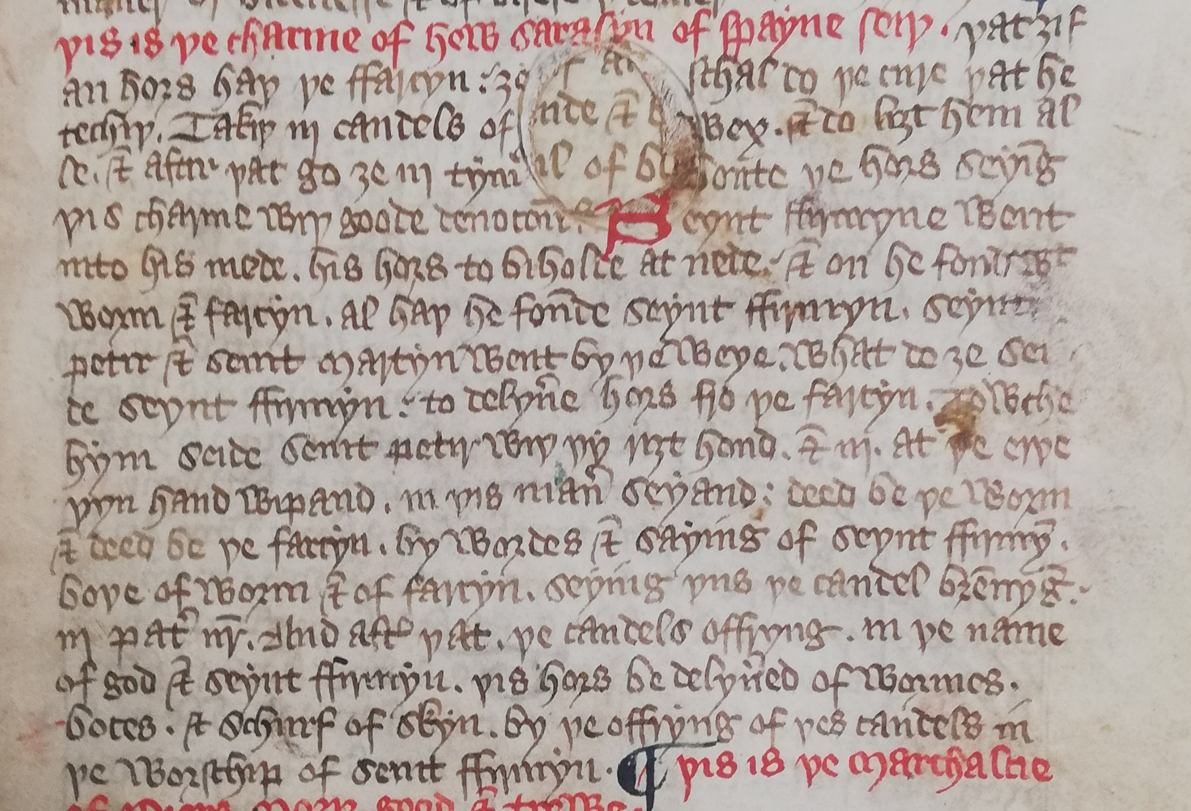 þis is þe charme of hew sarasyn of spayne seiþ . þat ȝif
an hors haþ þe ffarcyn : ȝe schal do þe cure þat he
techiþ . Takiþ iij candels of wex . & to liȝt hem al
se . & aftir þat go ȝe iij tym aboute þe hors seyīg
þis charme wiþ goode deuocoūn . Seynt ffirmyne went
into his mede . his hors to biholde at nede . & on he fonde
worm & farcyn . al haþ he fonde seynt ffirmyn . seynt
petir & seint martyn went by þe weye . what do ȝe sei
de seynt ffirmyn : to delyūe hors fro þe farcyn . towche
hym seide seint petir wiþ þy riȝt hond . & iij . at þe erþe
þyn hand wipand . in þis man̄ seyand : deed be þe worm
& deed be þe farcyn . by wordes & saying of seynt ffirmȳ .
boþe of worm & of farcyn . seying þus þe candel brēnyḡ .
iij pat̄ nr̄ . And aft̄ þat . þe candels offryng . in þe name
of god & seynt ffirmyn . þis hors be delyūed of wormes .
botes . & schurf of skyn . by þe offryng of þes candels in
þe worschip of seint ffirmyn . ¶ þis is þe marchalcie